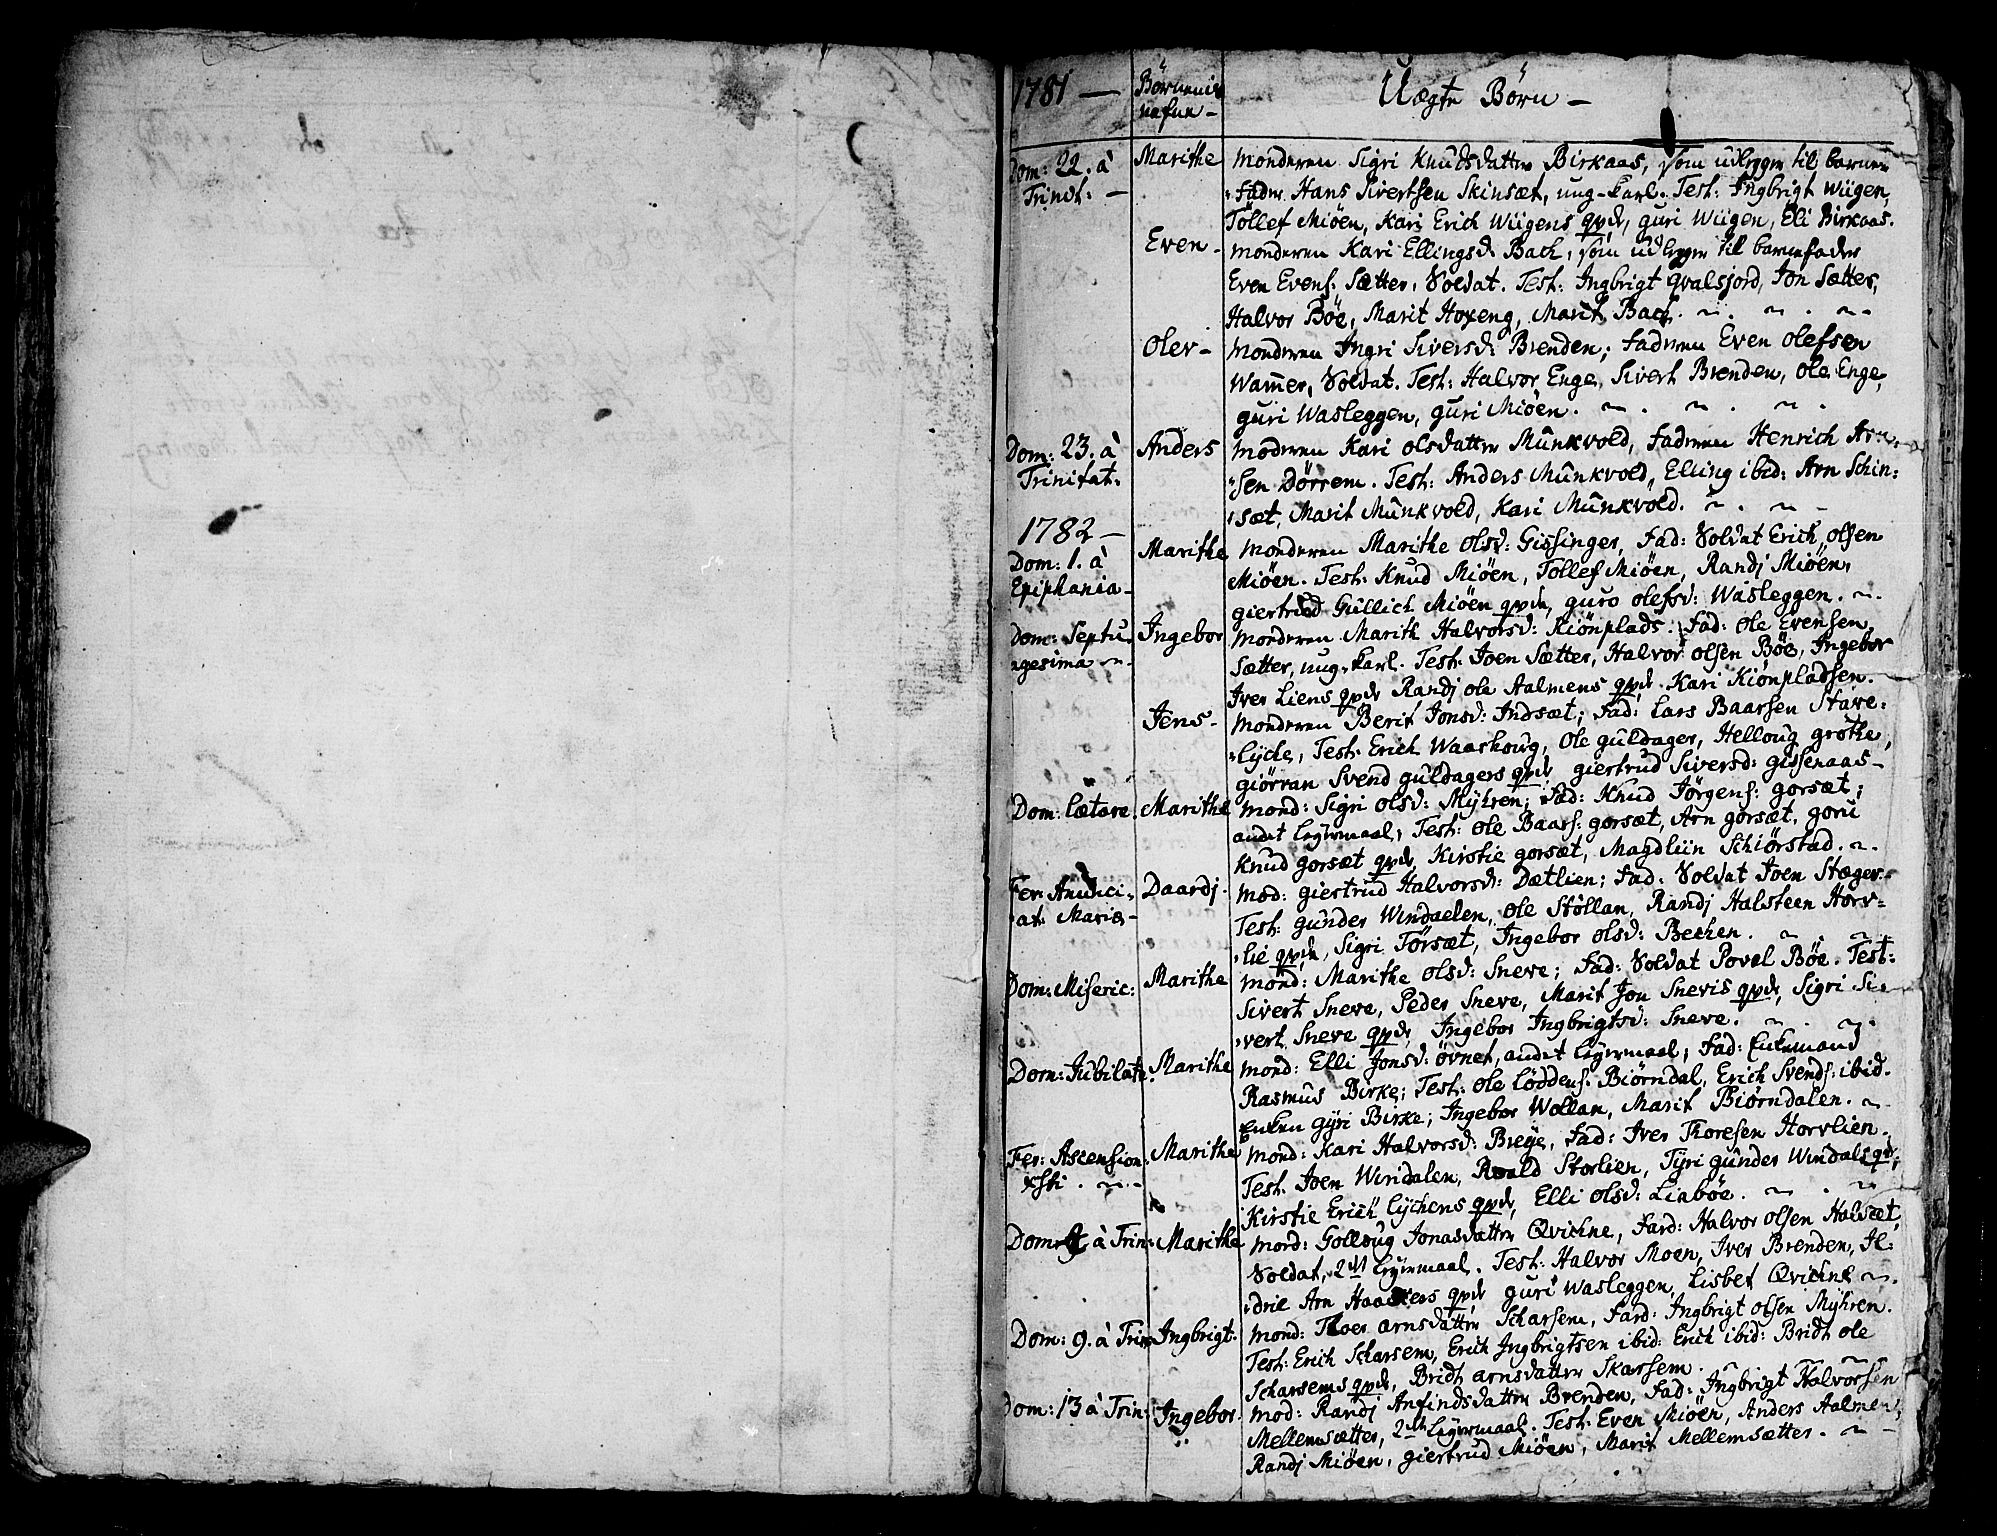 1781 — Børnenis nafne – Uægte Børn –
Dom: 22. à Trinit: — Marithe Moderen Sigri Knudsdatter Birkaas, som udlegger til barne-
fader Hans Sivertsen Skinsæt, ung-karl. Test: Ingbrigt Wiigen,
Tollef Miöen, Kari Erich Wiigens qvde, guri Wiigen, Eli Birkaas.
Even – Moderen Kari Ellingsd: Bach, som udlegger til barnefader
Even Evens: Sætter, Soldat. Test: Ingbrigt qvalsjord, Jon Sætter,
Halvor Böe, Marit Hoxeng, Marit Bach.
Olev – Moderen Ingri Siversd: Brenden; Faderen Even Olefsen
Wammer, Soldat. Test: Halvor Enge, Sivert Brenden, Ole Enge,
guri Wasleggen, guri Miöen.
Dom: 23. à Trinitat. Anders Moderen Kari olsdatter Munkvold, Faderen Henrich Arn-
sen Dörrem. Test: Anders Munkvold, Elling ibid: Arn Schin:
sæt, Marit Munkvold, Kari Munkvold.
1782 –
Dom: 1. à Epiphania – Marithe Moderen Marithe olsd: Gissinger, Fad: Soldat Erich olsen
Miöen. Test: Knud Miöen, Tollef Miöen, Randj Miöen,
giertrud Gullich Miöen qvde, guro olefsd: Wasleggen.
Dom: Septuagesima Ingebor Moderen Marith Halvorsd: Kiönplads. Fad: Ole Evensen
Sætter, ung-karl. Test: Joen Sætter, Halvor olsen Böe, Ingebor
Iver Liens qvde Randj ole Aalmens qvde. Kari Kiönpladsen.
Jens – Moderen Berit Jonsd: Indsæt; Fad: Lars Baarsen Stave:
Lycke, Test: Erich Waashoug, Ole guldager, Helloug grothe,
giörran Svend guldagers qvde, giertrud Siversd: gissenaas –
Dom: Lætare. Marithe Mod: Sigri olsd: Myhren; Fad: Knud Jörgens: gorsæt;
andet leyermaal, Test: ole Baars: gorsæt, Arn gorsæt, goru
Knud gorsæt qvde, Kirstie gorsæt, Magdliin Schiørstad.
Fer: Anunci: at: Mariæ – Daardj. Mod: giertrud Halvorsd: Dætlien; Fad: Soldat Joen Stæger.
Test: gunder Windaelen, ole Stöllan, Randj Halsteen Horv=
lie qvde, Sigri Törsæt, Ingebor olsd: Becken.
Dom: Miseric: Marithe Mod: Marithe olsd: Sneve; Fad: Soldat Povel Böe. Test:
Sivert Sneve, Peder Sneve, Marit Jon Snevis qvde, Sigri Si=
vert Sneve qvde, Ingebor Ingbrigtsd: Sneve.
Dom: Jubilate. Marithe Mod: Elli Jonsd: övnet, andet leyermaal; Fad: Enkemand
Rasmus Birke; Test: ole Löddens: Biörndal, Erich Svends: ibid.
Enken gyri Birke; Ingebor Wollan, Marit Biörndalen.
Fer: Ascension: xsti. Marithe Mod: Kari Halvorsd: Breye, Fad: Iver Thoresen Horvlien.
Test: Joen Windalen, Roald Storlien, Tyri gunder Windals qvde;
Kirstie Erich Lyckens qvde, Elli olsd: Liaböe.
Dom: à Trin: Marithe Mord: Golloug Jonasdatter Qvichne, Fard: Halvor olsen Halsæt,
Soldat, 2det leyermaal. Test: Halvor Moen, Iver Brenden, Il:
drie Arn Haackers qvde guri Wasleggen, Lisbet Qvichne
Dom: 9. à Trin Ingbrigt. Mod: Thoer arnsdatter Scharsem, Fard: Ingbrigt olsen Myhren.
Test: Erich Scharsem, Erich Ingbrigtsen ibid: Erich ibid: Bridt ole
Scharsems qvde, Bridt arnsdatter Skarsem.
Dom: 13 à Trin: Ingebor. Mod: Randj Anfindsdatter Brenden, Fad: Ingbrigt Halvorsen
Mellemsætter, 2det leyermaal. Test: Even Miöen, Anders Aalmen,
Randj Miöen, giertrud Miöen, Marit Mellemsætter.